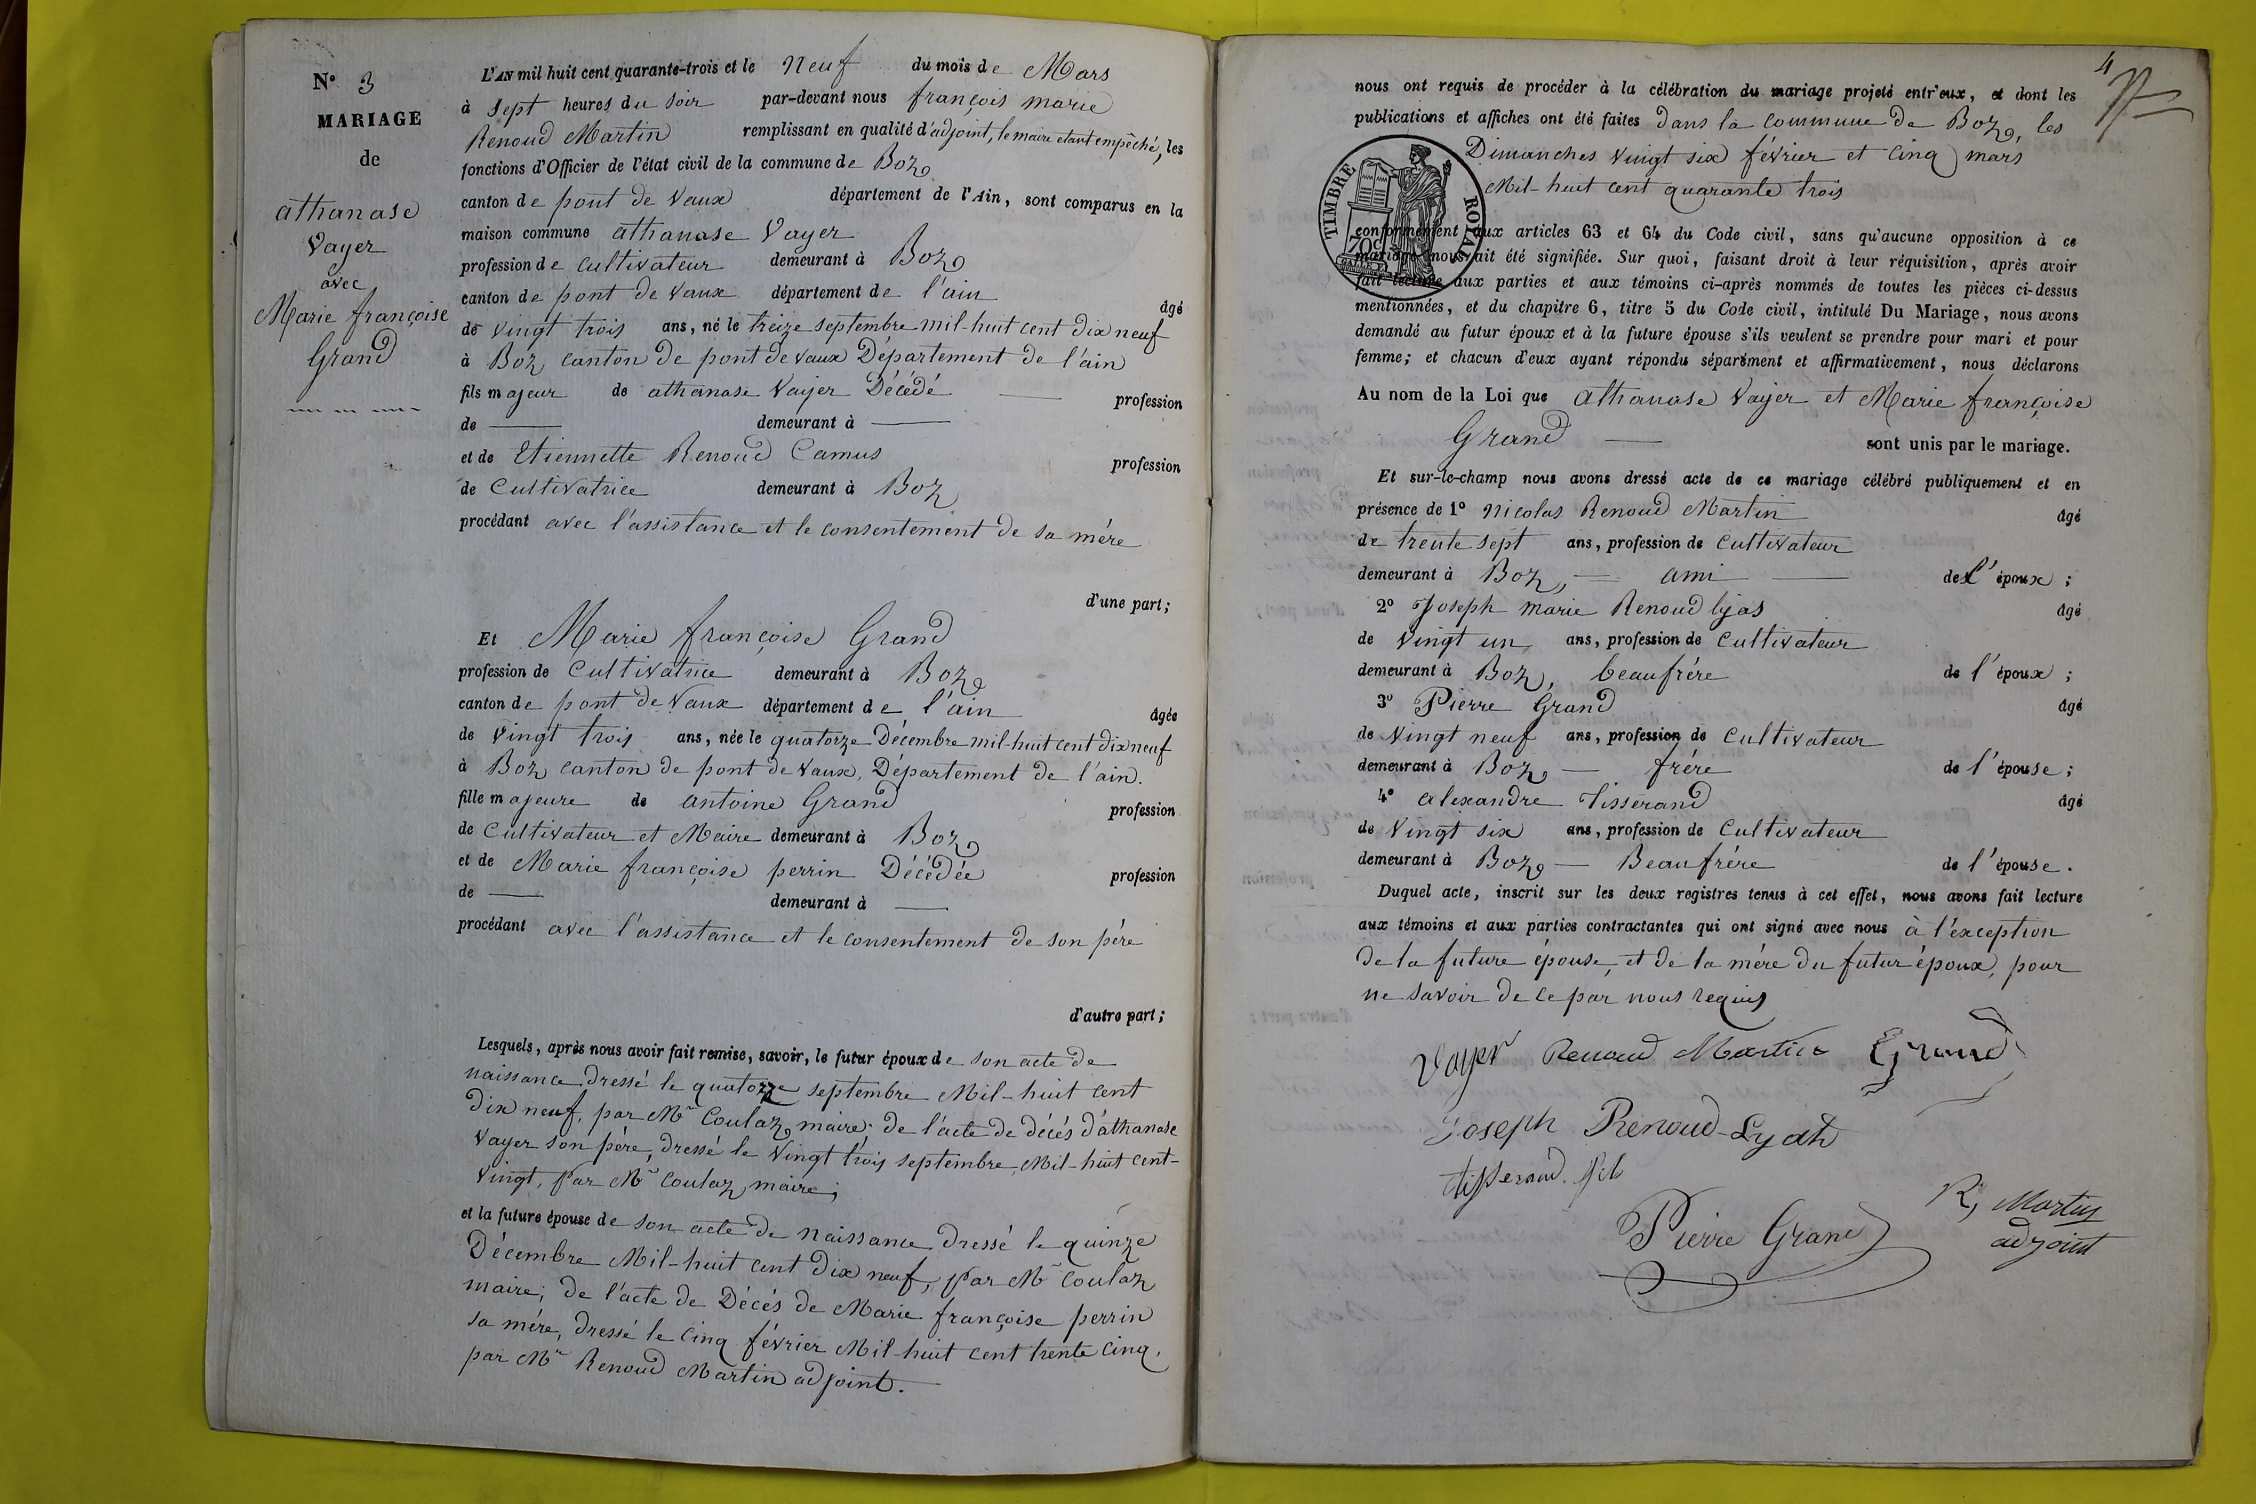 N° 3
MARIAGE
de
athanase
Vayer
avec
Marie françoise
Grand
L'AN mil huit cent quarante-trois et le Neuf du mois de Mars
à Sept heures du Soir par-devant nous françois marie
Renoud Martin remplissant en qualité d'adjoint, le maire étant empêché, les
fonctions d'Officier de l'état civil de la commune de Boz
canton de pont de Vaux département de l'Ain, sont comparus en la
maison commune athanase Vayer
profession de cultivateur demeurant à Boz
canton de pont de Vaux département de l'ain âgé
de vingt trois ans, né le treize septembre mil-huit cent dix neuf
à Boz canton de pont de Vaux Département de l'ain
fils majeur de athanase Vayer Décédé — profession
de — demeurant à —
et de Etiennette Renoud Camus profession
de Cultivatrice demeurant à Boz
procédant avec l'assistance et le consentement de sa mére
d'une part;
Et Marie françoise Grand
profession de Cultivatrice demeurant à Boz
canton de pont de Vaux département de l'ain âgée
de Vingt trois ans, née le quatorze Décembre mil-huit cent dix neuf
à Boz canton de pont de Vaux, Département de l'ain.
fille majeure de antoine Grand profession
de Cultivateur et Maire demeurant à Boz
et de Marie françoise perrin Décédée profession
de — demeurant à —
procédant avec l'assistance et le consentement de son pére
d'autre part;
Lesquels, après nous avoir fait remise, savoir, le futur époux de son acte de
naissance dressé le quatorze septembre Mil-huit cent
dix neuf, par Mr Coulaz maire; de l'acte de décés d'athanase
Vayer son pére, dressé le Vingt trois septembre, Mil-huit cent-
Vingt, par Mr Coulaz maire;
et la future épouse de son acte de naissance dressé le quinze
Décembre Mil-huit cent dix neuf, par Mr Coulaz
maire; de l'acte de Décés de Marie françoise perrin
sa mére, dressé le cinq février Mil-huit cent trente cinq,
par Mr Renoud Martin adjoint.
4
nous ont requis de procéder à la célébration du mariage projeté entr'eux, et dont les
publications et affiches ont été faites dans la commune de Boz, les
Dimanches vingt six février et cinq mars
Mil-huit cent quarante trois
TIMBRE ROYAL
70c
conformément aux articles 63 et 64 du Code civil, sans qu'aucune opposition à ce
mariage nous ait été signifiée. Sur quoi, faisant droit à leur réquisition, après avoir
fait lecture aux parties et aux témoins ci-après nommés de toutes les pièces ci-dessus
mentionnées, et du chapitre 6, titre 5 du Code civil, intitulé Du Mariage, nous avons
demandé au futur époux et à la future épouse s'ils veulent se prendre pour mari et pour
femme; et chacun d'eux ayant répondu séparément et affirmativement, nous déclarons
Au nom de la Loi que athanase Vayer et Marie françoise
Grand — sont unis par le mariage.
Et sur-le-champ nous avons dressé acte de ce mariage célébré publiquement et en
présence de 1° Nicolas Renoud Martin âgé
de trente sept ans, profession de Cultivateur
demeurant à Boz, — ami — de l'époux;
2° Joseph marie Renoud lyas âgé
de Vingt un ans, profession de Cultivateur
demeurant à Boz, beaufrére de l'époux;
3° Pierre Grand âgé
de Vingt neuf ans, profession de Cultivateur
demeurant à Boz, — frére de l'épouse;
4° alexandre Tisserand âgé
de Vingt six ans, profession de Cultivateur
demeurant à Boz, — Beaufrére de l'épouse.
Duquel acte, inscrit sur les deux registres tenus à cet effet, nous avons fait lecture
aux témoins et aux parties contractantes qui ont signé avec nous à l'exception
de la future épouse, et de la mére du futur époux, pour
ne savoir de ce par nous requis
Vayer Renoud Martin Grand
Joseph Renoud-Lyath
tisserand. fils
Pierre Grand
R, Martin
adjoint